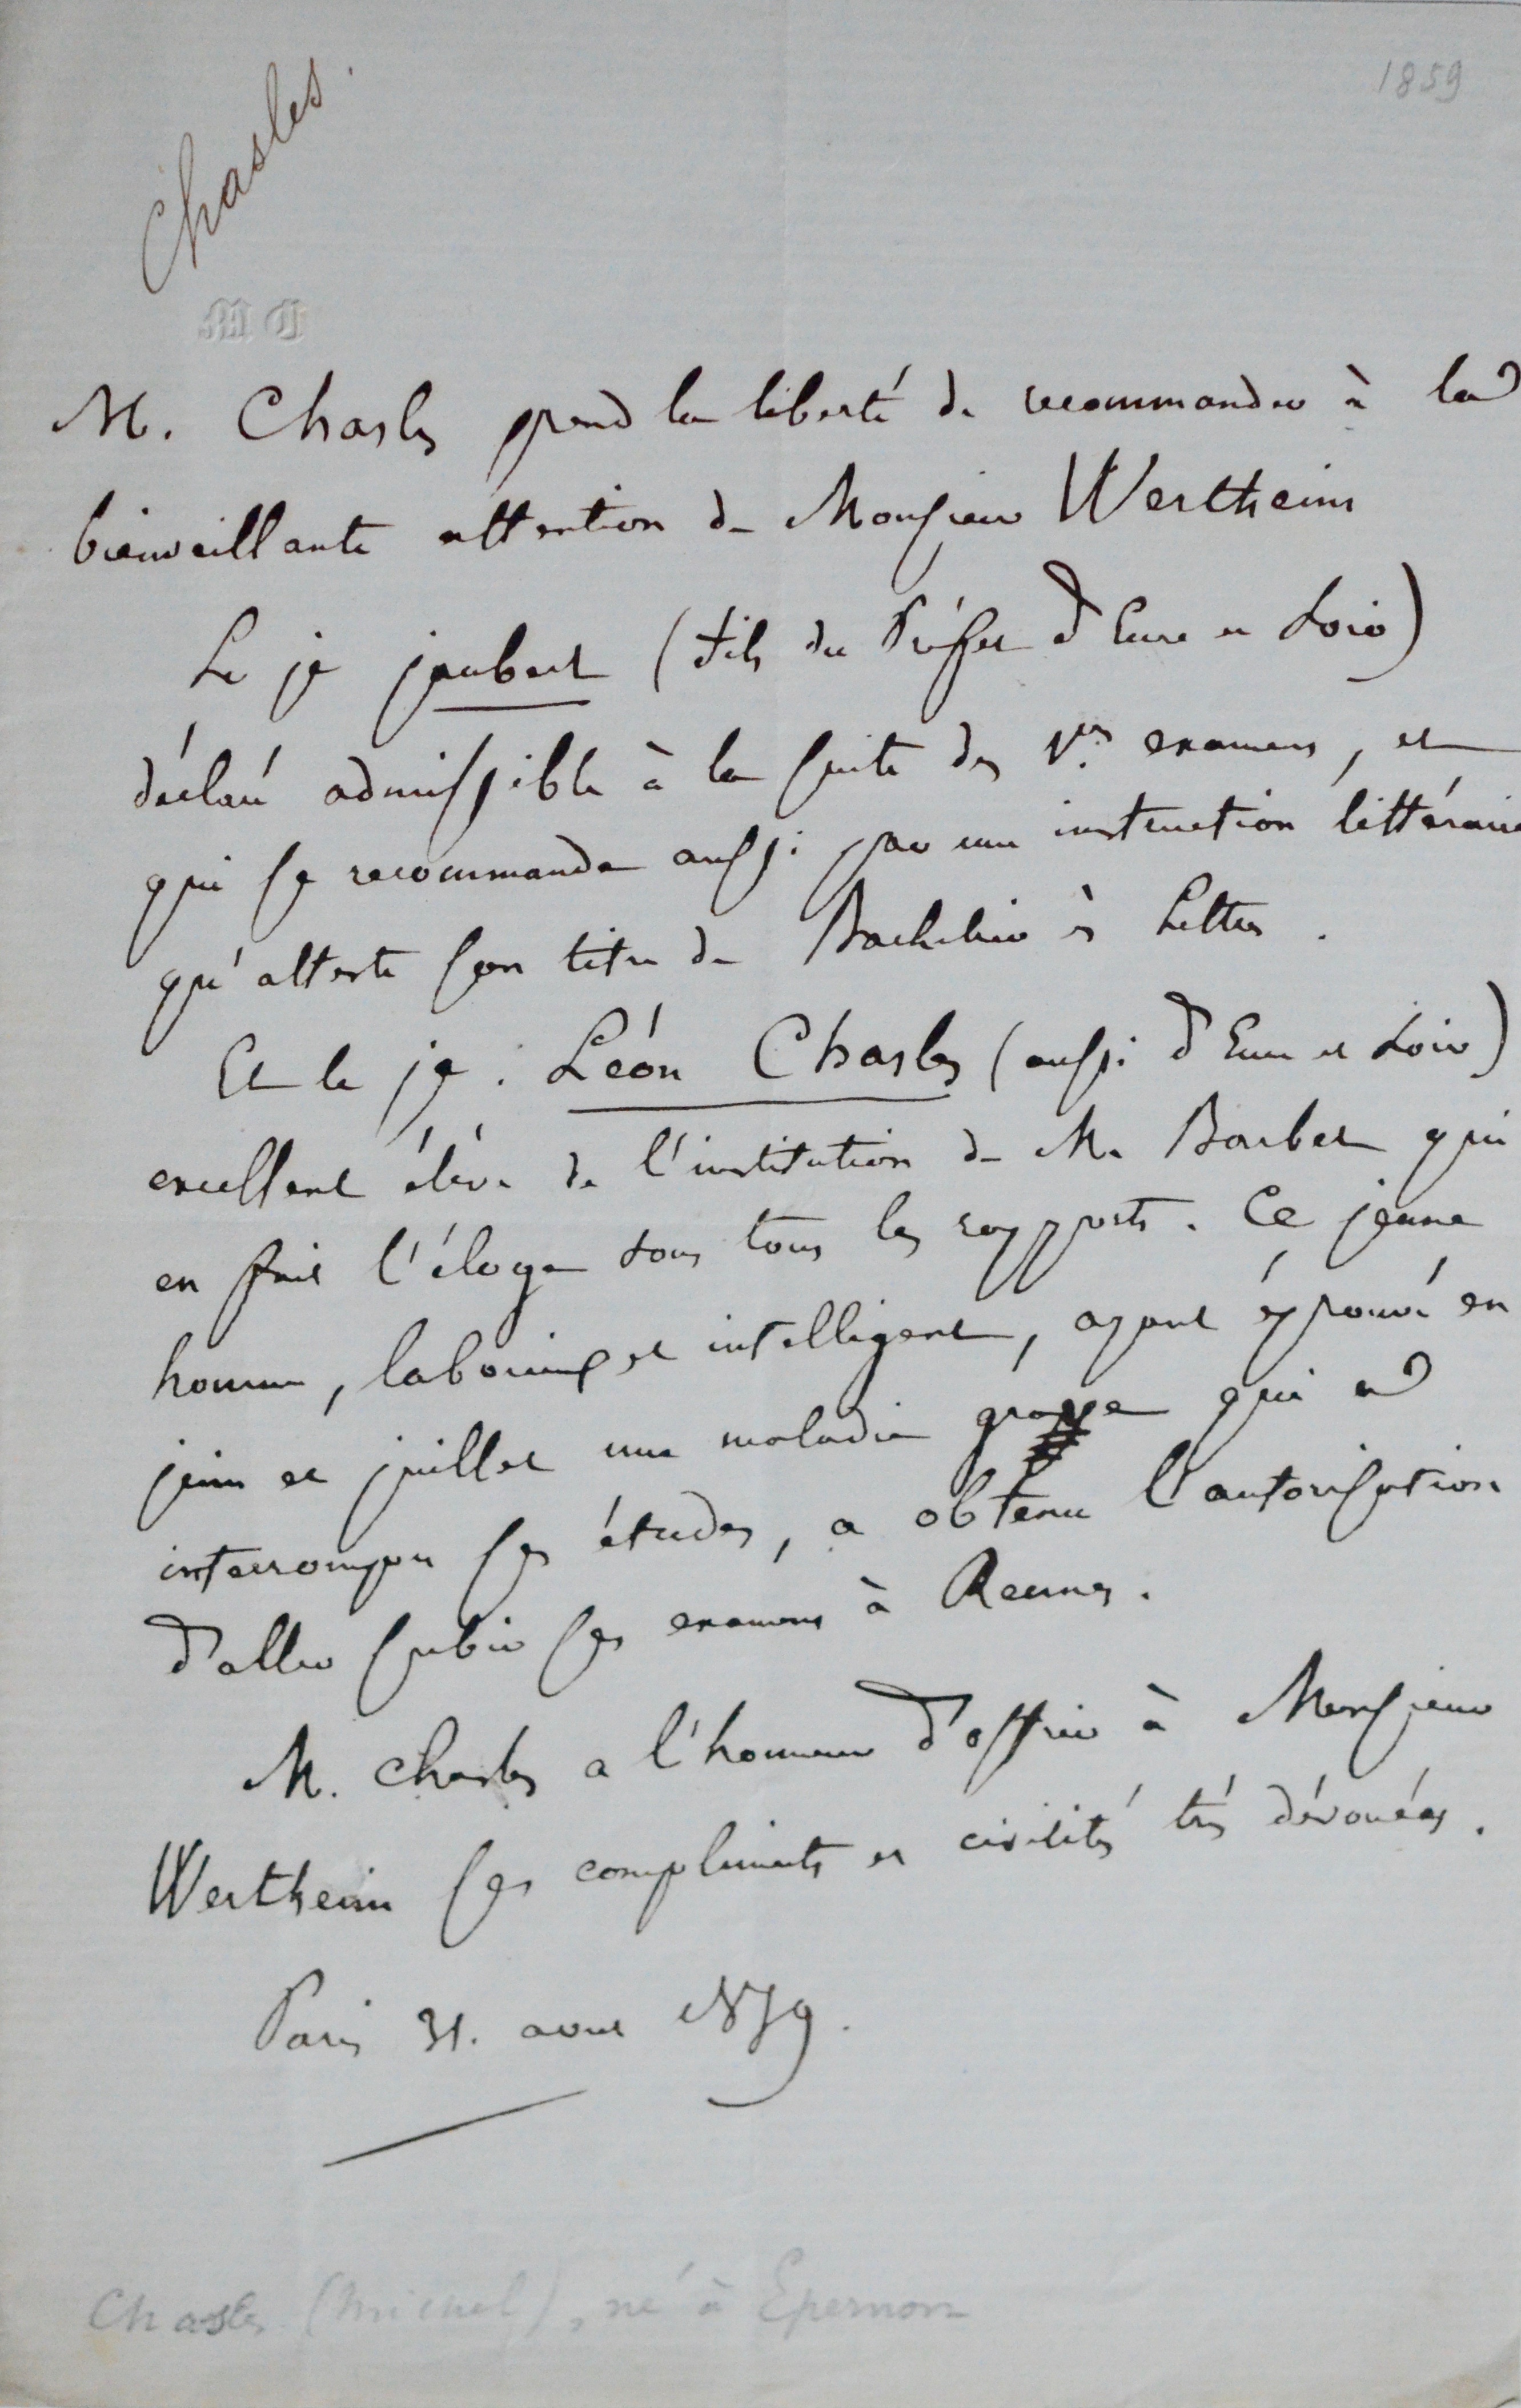 1859
Chasles.
M C
M. Chasles prend la liberté de recommander à la
bienveillante attention de Monsieur Wertheim
Le je jaubert (fils du Préfet d'Eure et Loir)
déclaré admissible à la suite des 1ers examens, et
qui se recommande aussi par une instruction littéraire
qu'atteste son titre de Bachelier ès Lettres.
Et le je. Léon Chasles (aussi d'Eure et Loir)
excellent élève de l'institution de M. Barbet qui
en fait l'éloge sous tous les rapports. Ce jeune
homme, laborieux et intelligent, ayant éprouvé en
juin et juillet une maladie grave qui a
interrompu ses études, a obtenu l'autorisation
d'aller subir ses examens à Rennes.
M. Chasles a l'honneur d'offrir à Monsieur
Wertheim ses compliments et civilités très dévouées.
Paris 31. aout 1859.
Chasles (Michel), né à Epernon